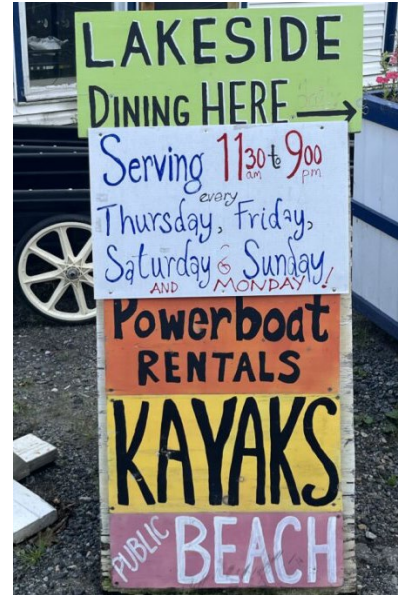 LAKESIDE
DINING HERE
Serving 11 30 am to 9 00 pm
every
Thursday, Friday,
Saturday & Sunday
AND MONDAY!
Powerboat
RENTALS
KAYAKS
PUBLIC BEACH